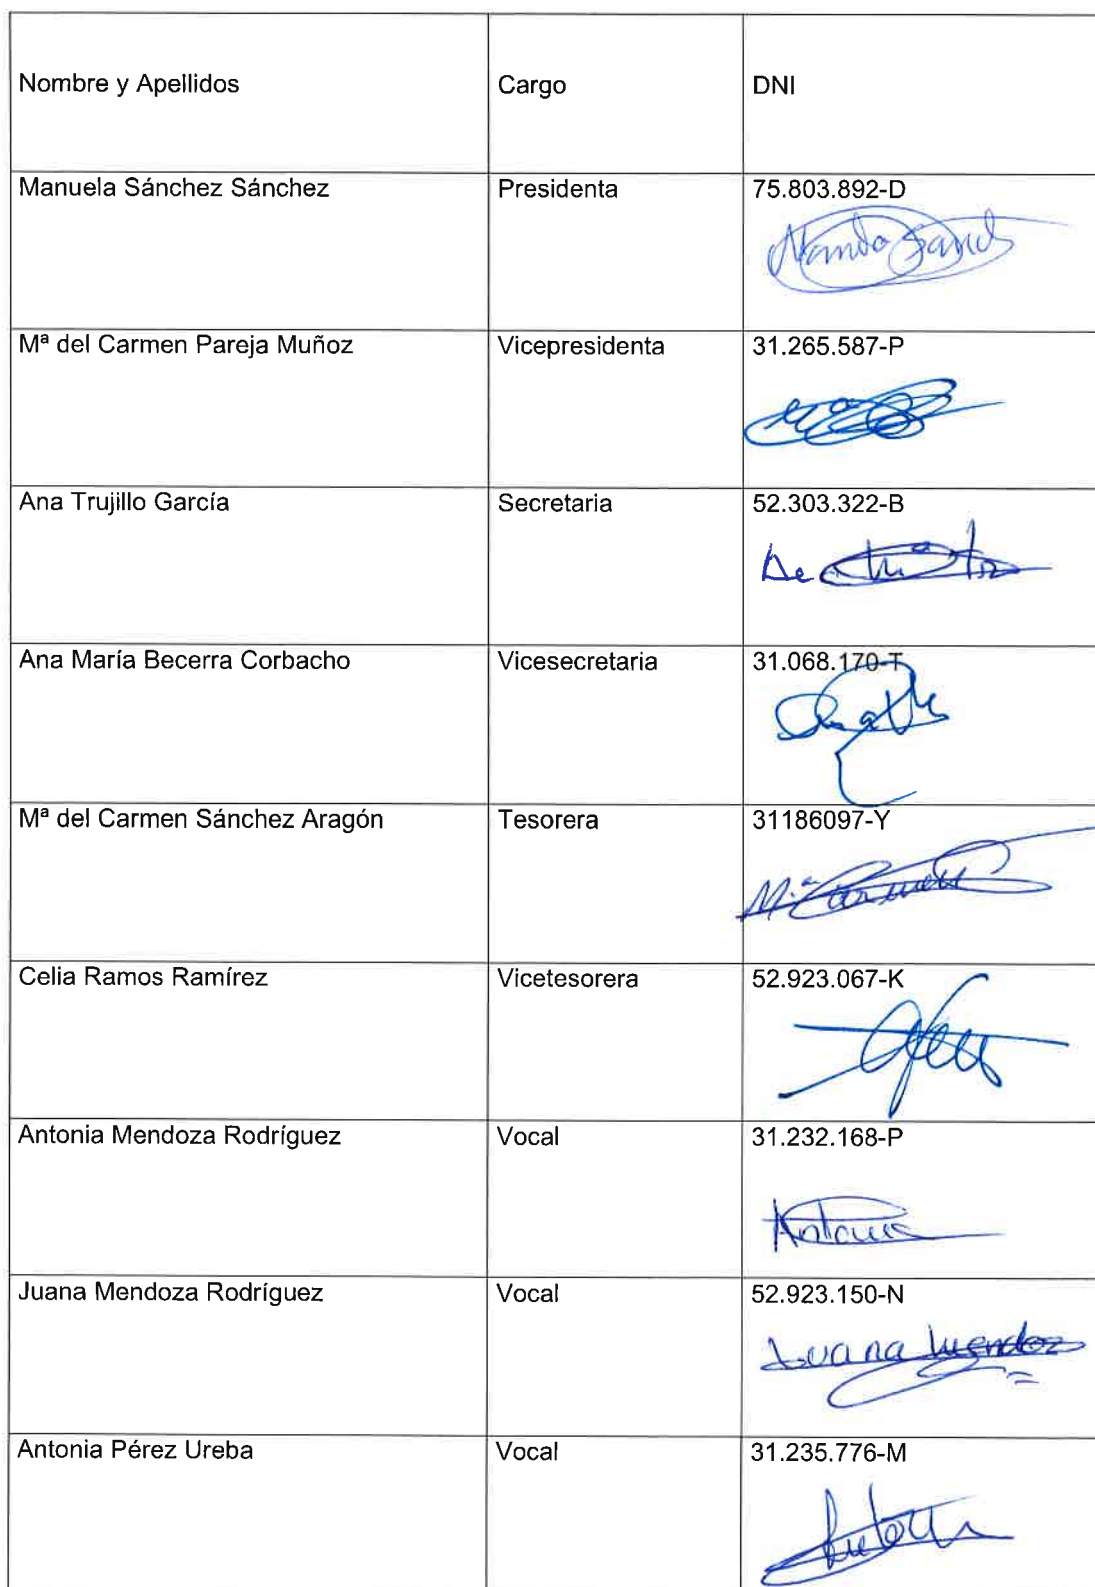 Nombre y Apellidos Cargo DNI
Manuela Sánchez Sánchez Presidenta 75.803.892-D
Mª del Carmen Pareja Muñoz Vicepresidenta 31.265.587-P
Ana Trujillo García Secretaria 52.303.322-B
Ana María Becerra Corbacho Vicesecretaria 31.068.170-T
Mª del Carmen Sánchez Aragón Tesorera 31186097-Y
Mª Carmen
Celia Ramos Ramírez Vicetesorera 52.923.067-K
Antonia Mendoza Rodríguez Vocal 31.232.168-P
Antonia
Juana Mendoza Rodríguez Vocal 52.923.150-N
Juana Mendoz
Antonia Pérez Ureba Vocal 31.235.776-M